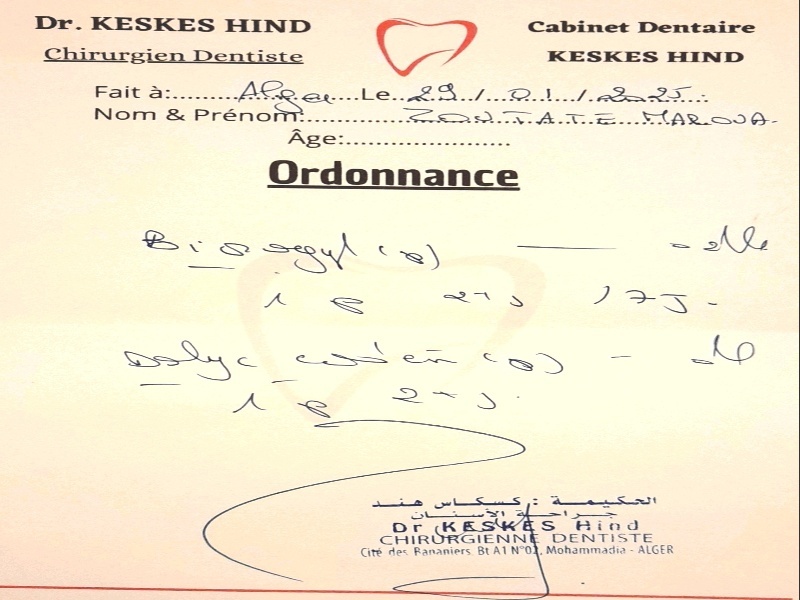 Dr. KESKES HIND
Chirurgien Dentiste
Cabinet Dentaire
KESKES HIND
Fait à:......Alger......Le..29../..01../..2025..
Nom & Prénom:...............ZONTATE MAROUA.
Âge:......................
Ordonnance
(p) —
1 p 2+J / 7J.
(p) -
1 p 2+J.
الحكيمة : كسكاس هند
جراحة الأسنان
Dr KESKES Hind
CHIRURGIENNE DENTISTE
Cité des Bananiers Bt A1 N°02, Mohammadia - ALGER